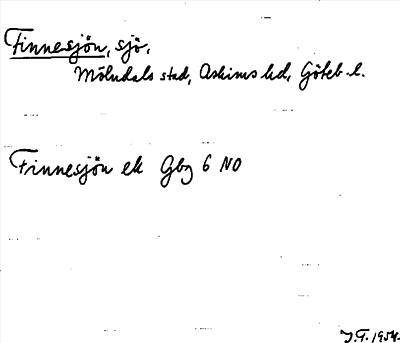 Finnesjön, sjö,
Mölndals stad, Askims hd, Göteb. l.
Finnesjön ek Gbg 6 NO
J.F. 1954.